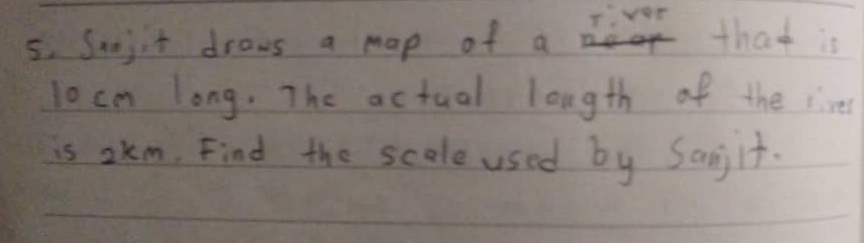 5. Sanjit draws a map of a river that is
10 cm long. The actual length of the river
is 2km. Find the scale used by Sanjit.